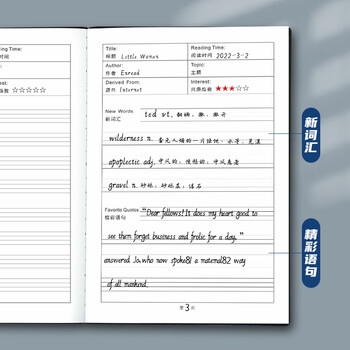 Reading Time:
Interest:
☆☆☆☆☆
Title:
标题 Little Women
Reading Time:
阅读时间 2022-3-2
Author:
作者 Enread
Topic:
主题
Derived From:
源于 Internet
Interest:
兴趣指数 ★★★☆☆
New Words
新词汇
ted vt. 翻晒,撒,撒开
wilderness n.
apoplectic adj. 中风的;愤怒的;中风患者
gravel n. 砂砾;砂砾层;结石
Favorite Quotes
精彩语句
"Dear fellows! It does my heart good to
see them forget business and frolic for a day."
answered Jo, who now spoke81 a maternal82 way
of all mankind.
第 3 页
新词汇
精彩语句